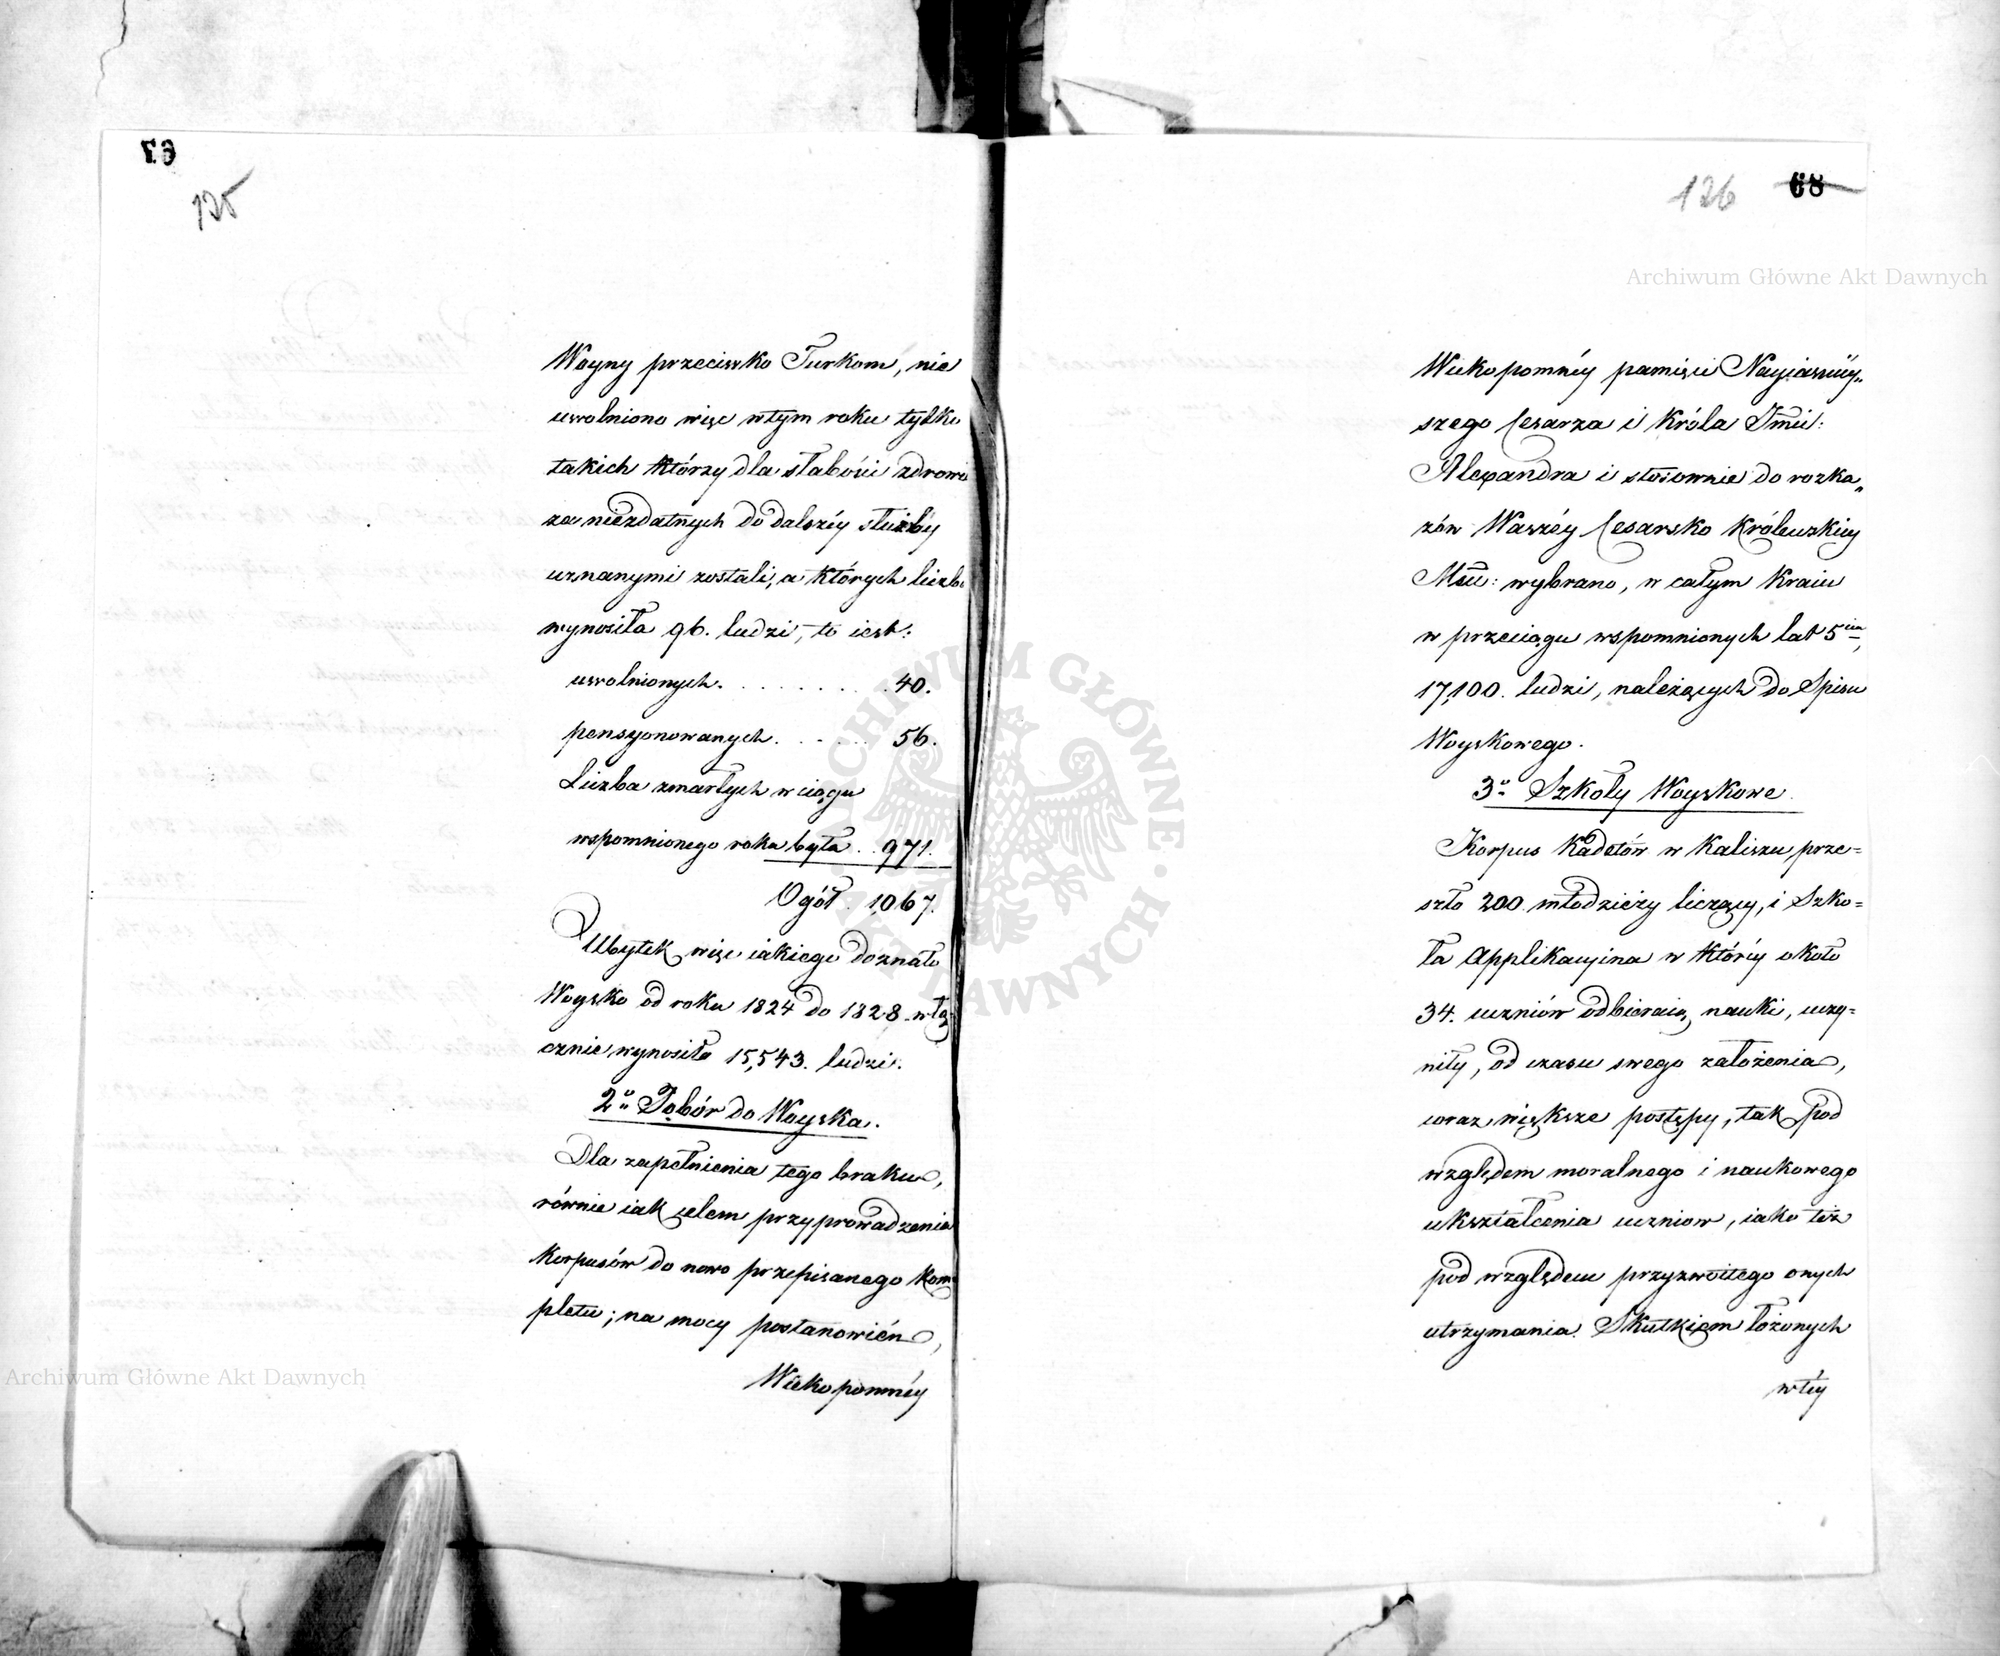 67
125
Woyny przeciwko Turkom, nie
uwolniono więc w tym roku tylko
takich którzy dla słabości zdrowia
za niezdatnych do dalszéy służby
uznanymi zostali, a których liczba
wynosiła 96. ludzi, to iest:
uwolnionych. . . . . . . . . 40.
pensyonowanych. . . . . . 56.
Liczba zmarłych w ciągu
wspomnionego roku była . . 971.
Ogół. 1,067.
Ubytek więc iakiego doznało
Woysko od roku 1824 do 1828 włą-
cznie wynosiło 15,543. ludzi.
2o Pobór do Woyska.
Dla zapełnienia tego braku,
równie iak celem przyprowadzenia
Korpusów do nowo przepisanego kom
pletu; na mocy postanowień,
Wiekopomnéy
126 68
Wiekopomnéy pamięci Nayiaśniey„
szego Cesarza i Króla Jmci:
Alexandra i stosownie do rozka„
zów Waszéy Cesarsko Królewskiey
Mści: wybrano, w całym Kraiu
w przeciągu wspomnionych lat 5ciu,
17,100. ludzi, należących do Spisu
Woyskowego.
3o Szkoły Woyskowe.
Korpus Kadetów w Kaliszu, prze=
szło 200 młodzieży liczący, i Szko=
ła Applikacyina w któréy około
34. uczniów odbieraią nauki, uczy=
niły, od czasu swego założenia,
coraz większe postępy, tak pod
względem moralnego i naukowego
ukształcenia uczniow, iako też
pod względem przyzwoitego onych
utrzymania. Skutkiem łożonych
w téy
Archiwum Główne Akt Dawnych
Archiwum Główne Akt Dawnych
ARCHIWUM GŁÓWNE AKT DAWNYCH